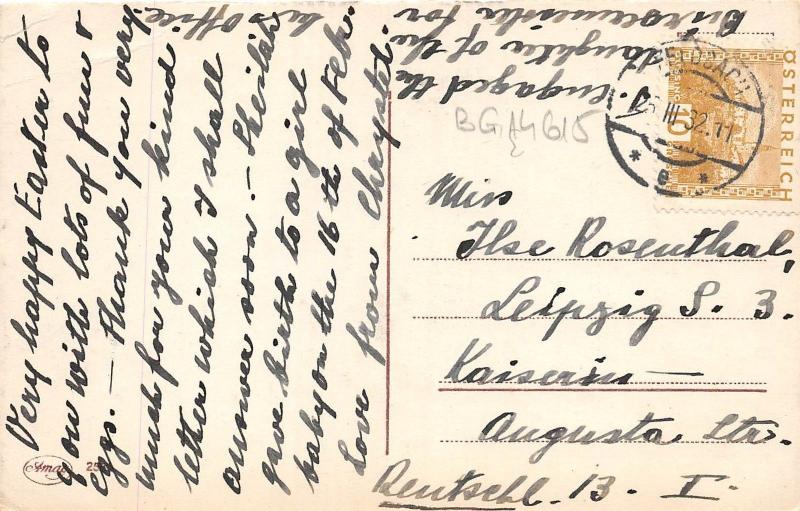 Very happy Easter to
you with lots of fun &
eggs. — Thank you very
much for your kind
letter which I shall
answer soon. — Sheilah
gave birth to a girl
baby on the 16th of Feb.
Love from Chrystel.
engaged the
daughter of the
Bürgermeister for
his office.
BGA4615
Miss
Ilse Rosenthal,
Leipzig S. 3.
Kaiserin —
Augusta Str.
Deutschl. 13. I.
ÖSTERREICH
10
III 32.11
* e *
Amag